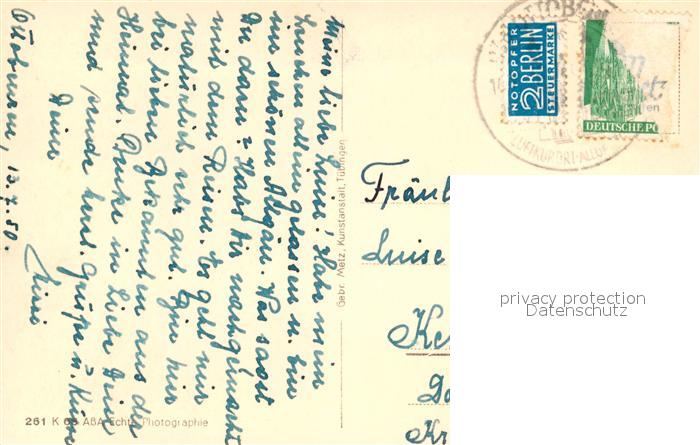 Ottobeuren, 13.7.50.
Meine liebe Luise! Habe mein
Lenchen allein gelassen u. bin
im schönen Allgäu. Was sagst
Du dazu? Habs Dir nachgemacht
mit dem Reisen. Es geht mir
natürlich sehr gut. Bin hier
bei lieben Bekannten aus der
Heimat. Denke in Liebe Dein
und sende herzl. Grüße u. Küsse
Deine
Gebr. Metz, Kunstanstalt, Tübingen
261 K ABA Echte Photographie
NOTOPFER
2 BERLIN
STEUERMARKE
DEUTSCHE PO
LUFTKURORT
Fräul
Luise
Ke
Do
Kr
privacy protection
Datenschutz